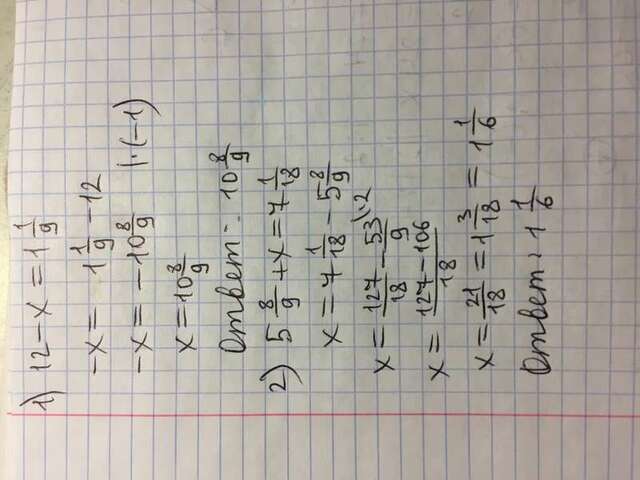 1) 12 - x = 1 1/9
-x = 1 1/9 - 12
-x = -10 8/9 |·(-1)
x = 10 8/9
Ответ: 10 8/9
2) 5 8/9 + x = 7 1/18
x = 7 1/18 - 5 8/9
x = 127/18 - 53/9 \·2
x = (127 - 106)/18
x = 21/18 = 1 3/18 = 1 1/6
Ответ: 1 1/6